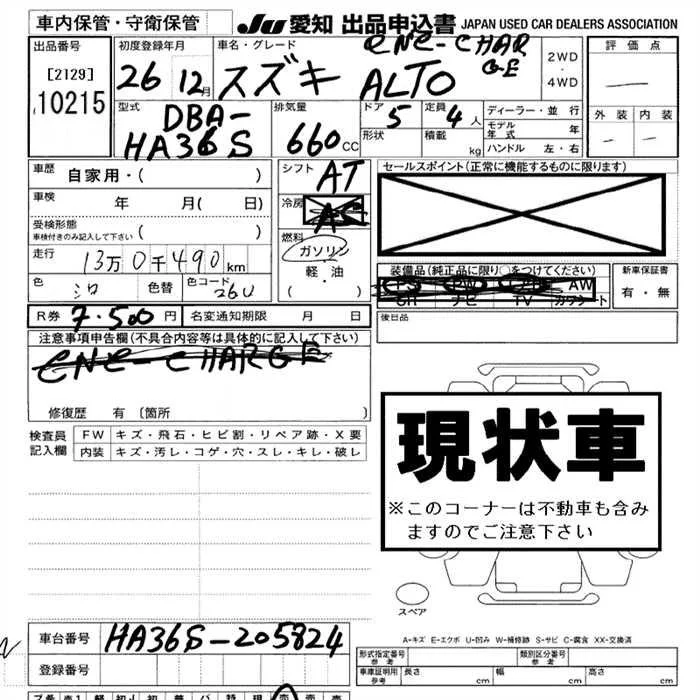 車内保管・守衛保管
JU 愛知 出品申込書 JAPAN USED CAR DEALERS ASSOCIATION
出品番号
[2129]
10215
初度登録年月
26 12月
車名・グレード
スズキ ALTO
ENE-CHAR
GE
2WD
・
4WD
評価点
外装 内装
型式
DBA-
HA36S
排気量
660cc
ドア 5
定員 4人
形状
積載 kg
ディーラー・並行
モデル年式 年
ハンドル 左・右
車歴 自家用・( )
車検 年 月( 日)
受検形態
車検付きのみ記入して下さい ( )
走行 13万0千490km
色 シロ 色替 色コード 26U
シフト AT
冷房 AC
燃料
ガソリン
軽・油
( ・ )
セールスポイント(正常に機能するものに限ります)
装備品(純正品に限り○をつけてください)
PS PW AW
SR ナビ TV カワシート
新車保証書
有・無
後日品
R券 7.500円 名変通知期限 月 日
注意事項申告欄(不具合内容等は具体的に記入して下さい)
ENE-CHARGE
修復歴 有〔箇所 〕
検査員
記入欄
FW キズ・飛石・ヒビ割・リペア跡・X要
内装 キズ・汚レ・コゲ・穴・スレ・キレ・破レ
現状車
※このコーナーは不動車も含み
ますのでご注意下さい
スペア
A-キズ E-エクボ U-凹み W-補修跡 S-サビ C-腐食 XX-交換済
車台番号 HA36S-205824
登録番号
形式指定番号
参考
類別区分番号
参考
車庫証明用
参考
長さ cm 幅 cm 高さ cm